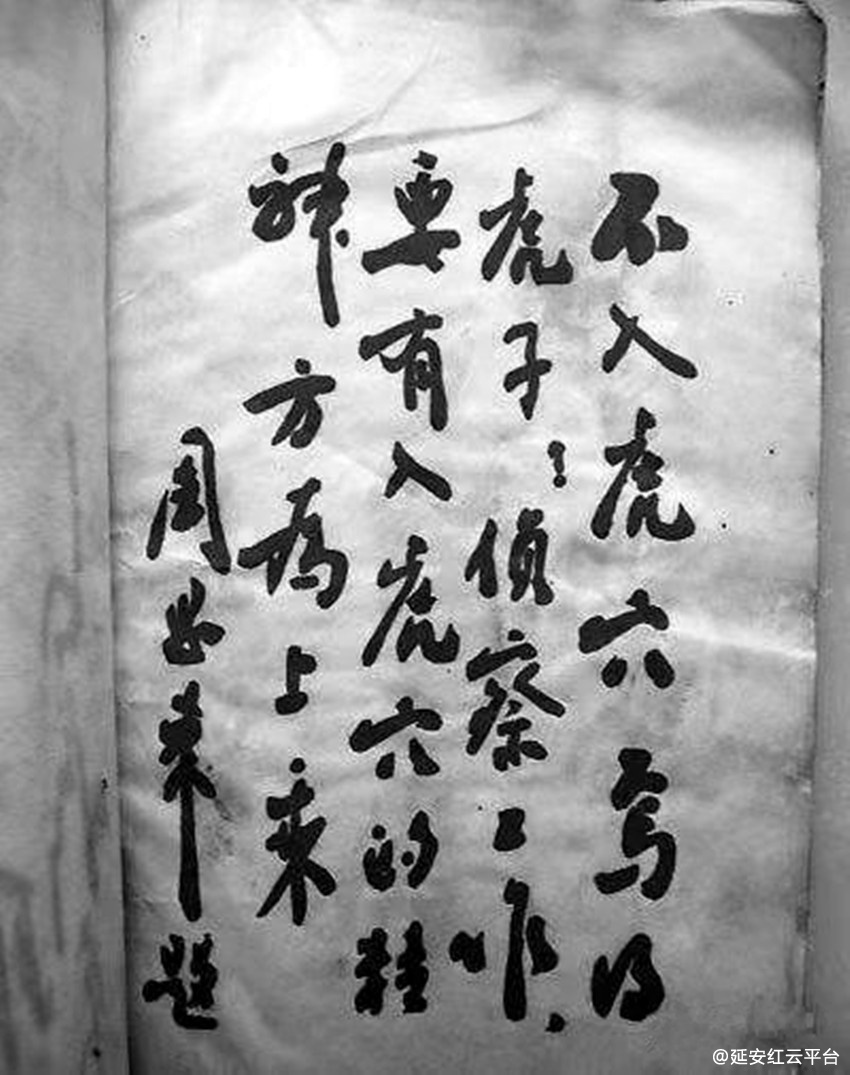 不入虎穴焉得
虎子；偵察工作，
要有入虎穴的精
神方為上乘
周恩來題
@延安红云平台